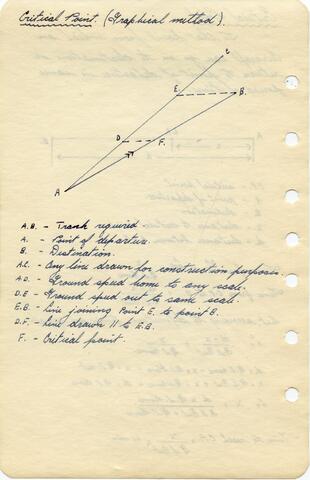 Critical Point. (Graphical method).
C
E.
B.
D
F.
A
A.B. - Track required
A. - Point of departure.
B. - Destination.
A.C. - Any line drawn for construction purposes.
A.D. - Ground speed home to any scale.
D.E - Ground speed out to same scale.
E.B. - Line joining Point E. to point B.
D.F. - Line drawn 11 to E.B.
F. - Critical point.